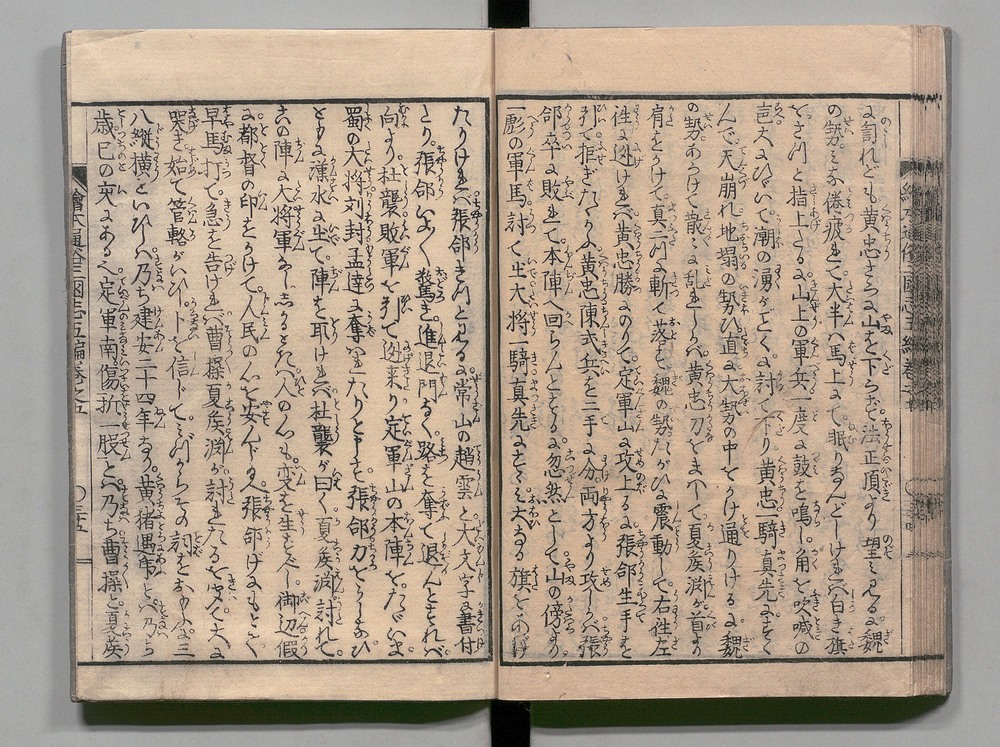 に罵れども黄忠さらに山を下らず法正頂より望みみるに魏
の勢みな倦疲れて大半ハ馬上にて眠りなんどしけれバ白き旗
をさつと指上たるに山上の軍兵一度に鼓を鳴し角を吹喊の
声大にひゞいて潮の湧がごとくに討て下り黄忠一騎真先にすゝ
んで天崩れ地塌の勢ひ直に大勢の中をかけ通りけるに魏
の勢あはてゝ散々に乱れしかバ黄忠刀をまハして夏矦渕が首より
肩をかけて真二つに斬て落す魏の勢たがひに震動して右往左
往に迯けれバ黄忠勝にのりて定軍山に攻上る張郃生手を
引て拒ぎたりしに黄忠陳式兵を二手に分両方より攻しかバ張
郃卒に敗れて本陣へ回らんとするに忽然として山の傍より
一彪の軍馬討て出大将一騎真先にすゝみ大なる旗をあげ
たりけれバ張郃きつとみるに常山の趙雲と大文字に書付
たり張郃いよ〱驚き進退門なく路を奪て退んとすれバ
向より杜襲敗軍を引て迯来り定軍山の本陣をたゞいま
蜀の大将刘封孟達に奪れたりと申す張郃力をうしなひ
ともに漢水に出て陣を取けれバ杜襲が曰く夏矦渕討れて
この陣に大将軍なししかるときハ人の心も変を生ずべし御辺假
に都督の印をかけて人民の心を安んじ玉へ張郃げにもとて
早馬打て急を告けれバ曹操夏矦渕が討れたるを聞て大に
哭き始て管輅がいひしを信じてみづからその詞をおもふに三
八縦横といひしハ乃ち建安二十四年なり黄猪遇虎とハ乃ち
歳己の亥にあるなり定軍南傷折一股とハ乃ち曹操と夏矦
繪本通俗三國志五編卷之五